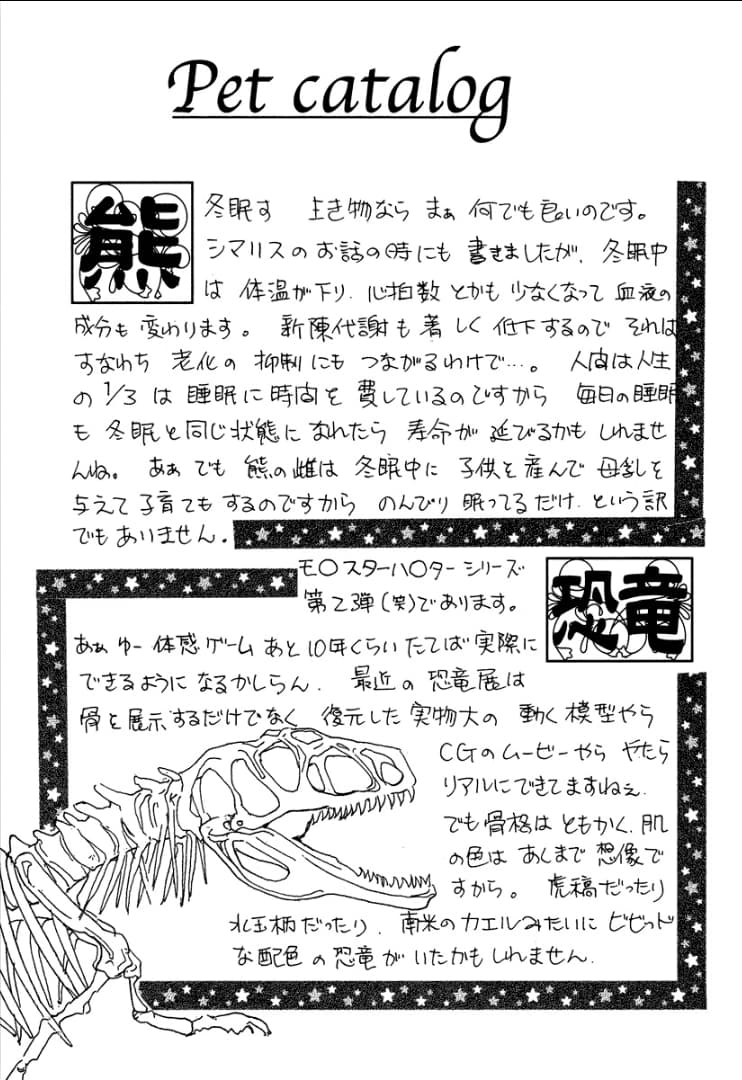 Pet catalog
熊
冬眠す 生き物なら まぁ 何でも良いのです。
シマリスのお話の時にも 書きましたが、冬眠中
は 体温が下り、心拍数とかも 少なくなって 血液の
成分も 変わります。 新陳代謝も 著しく 低下するので それは
すなわち 老化の 抑制にも つながるわけで…。 人間は人生
の 1/3 は 睡眠に時間を 費しているのですから 毎日の睡眠
も 冬眠と同じ状態に なれたら 寿命が 延びるかも しれませ
んね。 あぁ でも 熊の雌は 冬眠中に 子供を産んで 母乳を
与えて 子育ても するのですから のんびり 眠ってるだけ、という訳
でも ありません。
恐竜
モ〇スターハ〇ターシリーズ
第2弾(笑)であります。
あぁ ゆー 体感ゲーム あと10年くらい たてば 実際に
できるように なるかしらん、 最近の 恐竜展は
骨を展示するだけでなく 復元した実物大の 動く模型やら
CGのムービーやら やたら
リアルにできてますねぇ、
でも骨格は ともかく、肌
の色は あくまで 想像で
すから。 虎縞だったり
水玉柄だったり、 南米のカエルみたいに ビビッド
な配色の恐竜が いたかもしれません、